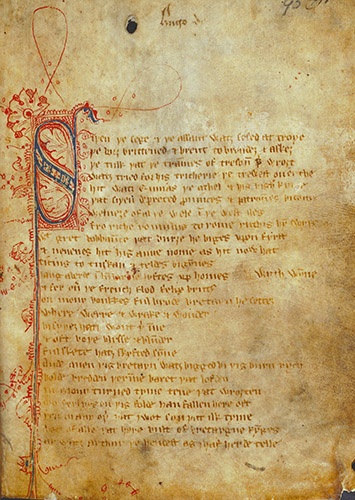 Hugo d
Siþen þe sege & þe assaut watz sesed at troye
þe borȝ brittened & brent to brondez & askez
þe tulk þat þe trammes of tresoun þ wroȝt
watz tried for his tricherie þe trewest on erthe
hit watz ennias þe athel & his highe kynde
þat siþen depreced prouinces & patrounes bicome
welneȝe of al þe wele in þe west iles
fro riche romulus to rome ricchis hym swyþe
gret bobbaunce þat burȝe he biges vpon fyrst
& neuenes hit his aune nome as hit now hat
ticius to tuskan & teldes bigynnes
langaberde in lumbardie lyftes vp homes wyth wynne
& fer ou þe french flod felix brutus
on mony bonkkes ful brode bretayn he settez
where werre & wrake & wonder
bi syþez hatz wont þ inne
& oft boþe blysse & blunder
ful skete hatz skyfted synne
ande quen þis bretayn watz bigged bi þis burn rych
bolde bredden þ inne baret þat lofden
in mony turned tyme tene þat wroȝten
mo ferlyes on þis folde han fallen here oft
þen in any oþ þat I wot syn þat ilk tyme
bot of alle þat here bult of bretaygne kynges
ay watz arthur þe hendest as I haf herde telle